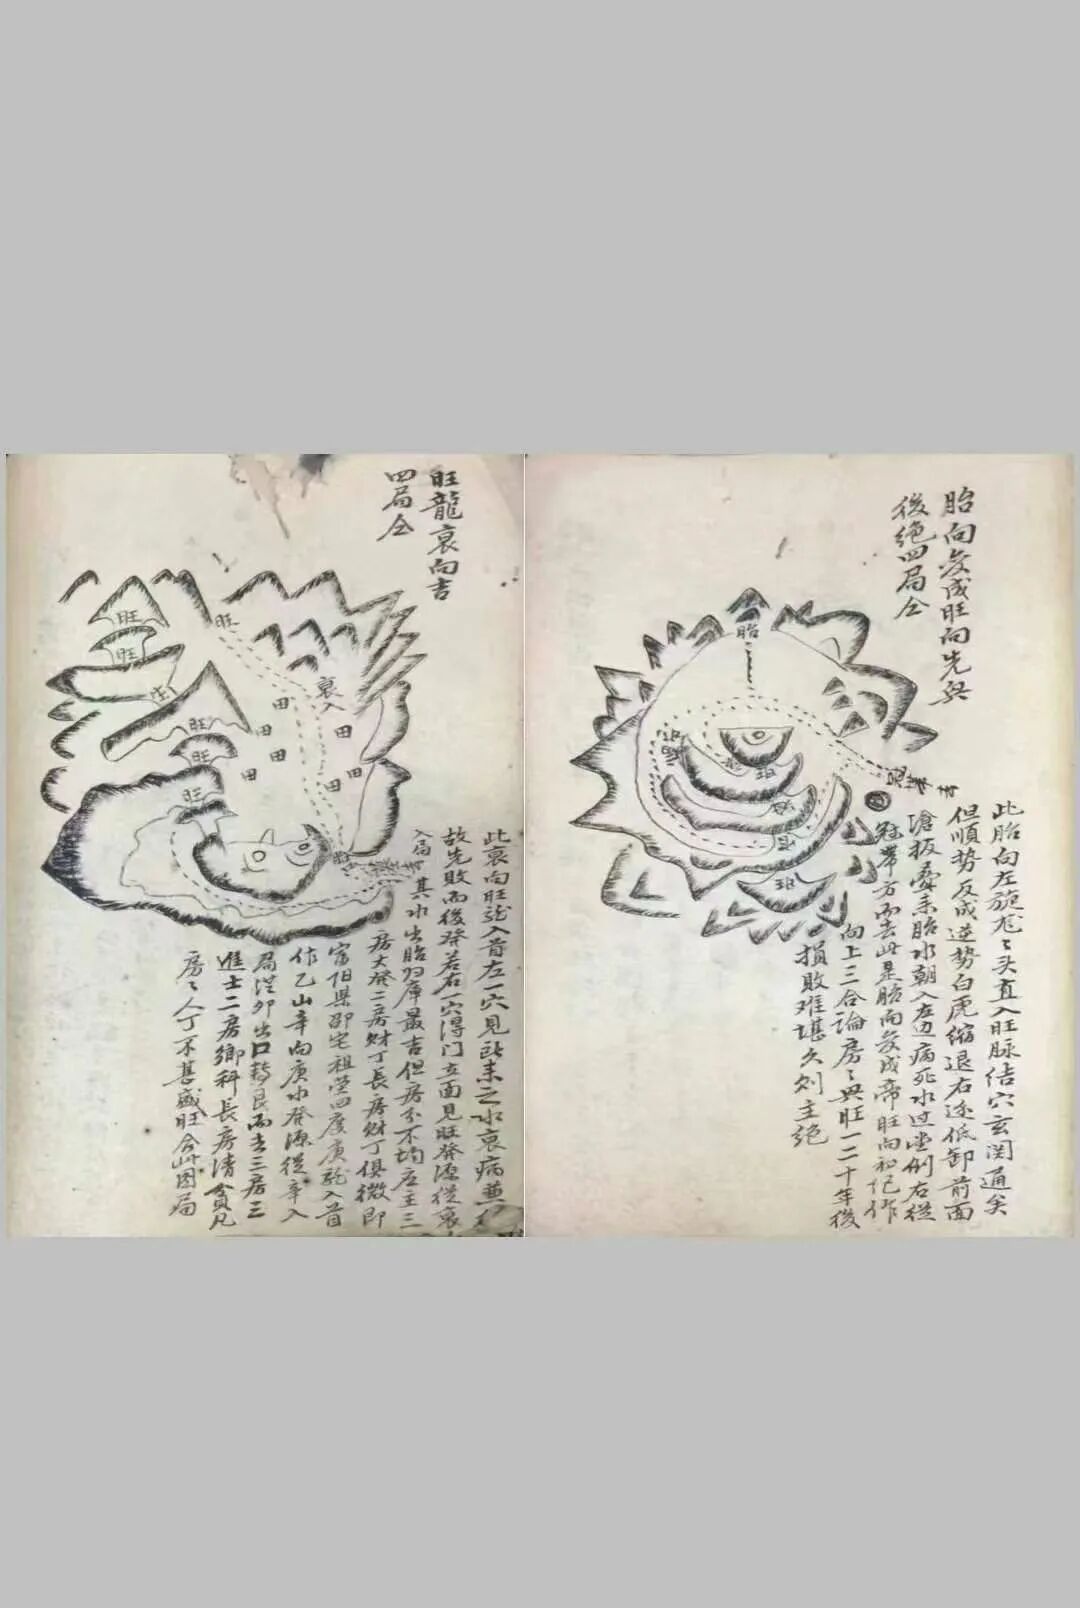 胎向變成旺向先興
後絶四局仝
胎
冠帶
此胎向左旋龙〻头直入旺脉结穴玄関通矣
但順势反成逆势白虎缩退右边低卸前面
胎水朝入左边病死水过堂倒右從
冠帶方而去此是胎向變成帝旺向
向上三合論房〻興旺一二十年後
損敗难堪久则主绝
旺龍衰向吉
四局仝
旺
旺
旺
旺
旺
旺
旺
衰入
田
田
田
田
田
田
田
此衰向旺龙入首左一穴見耒之水衰病
故先敗而後發若右一穴得门立面見旺發源從衰
入局
其水出胎归庫最吉但房分不均应主三
房大發二房财丁長房财丁俱微即
富阳県邵宅祖茔四度庚龍入首
作乙山辛向庚水發源從辛入
局涅卯出口轉艮而去三房三
進士二房鄉科長房清貧凡
房〻人丁不甚盛旺合此图局